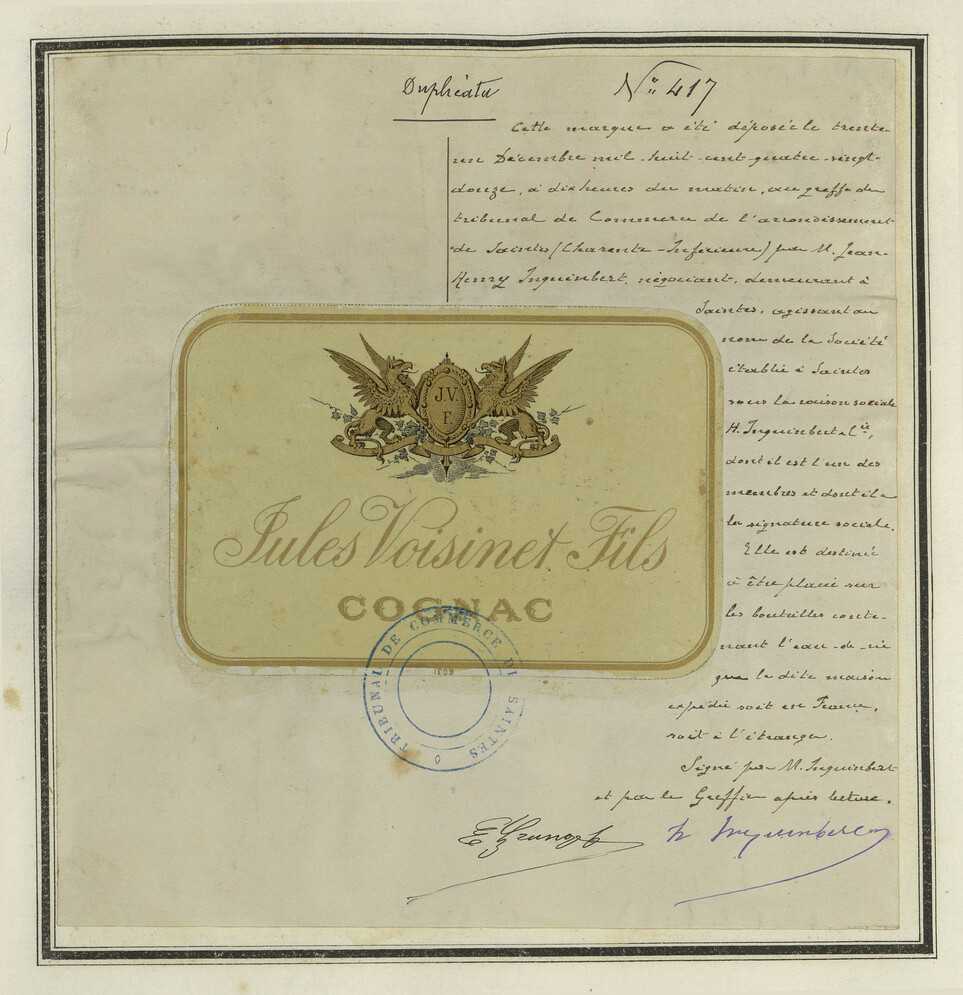 Duplicata
N° 417
Cette marque a été déposée le trente
un Décembre mil-huit-cent-quatre-vingt-
douze, à dix heures du matin, au greffe du
tribunal de Commerce de l'arrondissement
de Saintes (Charente-Inférieure) par M. Jean-
Henry Inquimbert, négociant, demeurant à
Saintes, agissant au
nom de la Société
établie à Saintes
sous la raison sociale
H. Inquimbert & Cie,
dont il est l'un des
membres et dont il a
la signature sociale.
Elle est destinée
à être placée sur
les bouteilles conte-
nant l'eau-de-vie
que la dite maison
expédie soit en France,
soit à l'étranger.
Signé par M. Inquimbert
et par le Greffier après lecture.
J.V.
F.
Jules Voisin et Fils
COGNAC
TRIBUNAL DE COMMERCE DE SAINTES
H Inquimbert